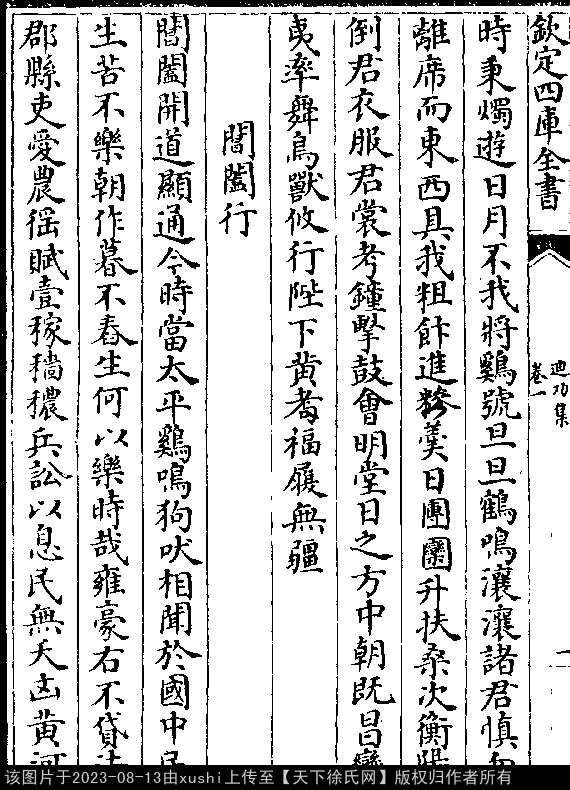 欽定四庫全書
迪功集
卷一
時秉燭遊日月不我將鷄號旦旦鶴鳴瀼瀼諸君慎勿
離席而東西具我粗飰進黲羮日團圞升扶桑次衡陽
倒君衣服君裳考鐘擊鼓會明堂日之方中朝既昌蠻
夷率舞鳥獸攸行陛下黄耉福履無疆
閶闔行
閶闔開道顯通今時當太平鷄鳴狗吠相聞於國中民
生苦不樂朝作暮不舂生何以樂時哉雍豪右不貸法
郡縣吏愛農徭賦壹稼穡穠兵訟以息民無夭凶黄河
该图片于2023-08-13由xushi上传至【天下徐氏网】版权归作者所有